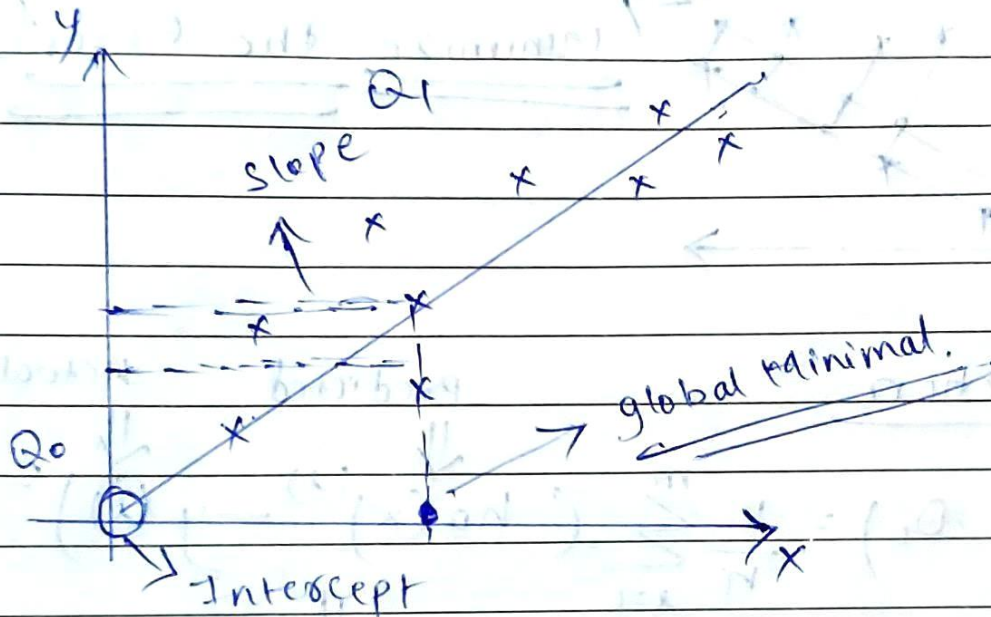 y
Q1
slope
global minimal.
Q0
x
Intercept